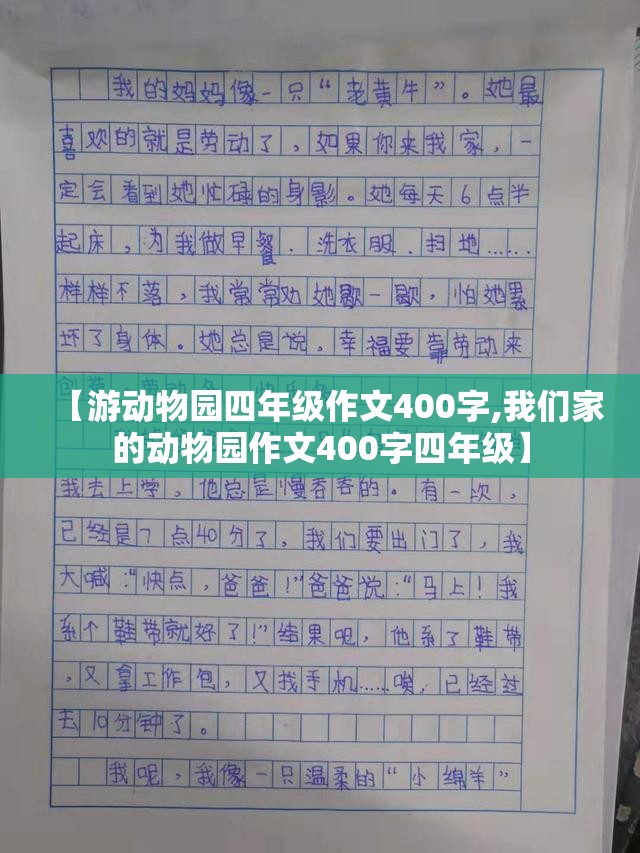 我的妈妈像一只“老黄牛”。她最
喜欢的就是劳动了，如果你来我家，一
定会看到她忙碌的身影。她每天6点半
起床，为我做早餐、洗衣服、扫地……
样样不落，我常常劝她歇一歇，怕她累
坏了身体。她总是说，幸福要靠劳动来
【游动物园四年级作文400字,我们家
的动物园作文400字四年级】
我去上学，他总是慢吞吞的。有一次，
已经是7点40分了，我们要出门了，我
大喊：“快点，爸爸！”爸爸说：“马上！我
系个鞋带就好了！”结果呢，他系了鞋带
，又拿工作包，又找手机……唉，已经过
去10分钟了。
我呢，我像一只温柔的“小绵羊”